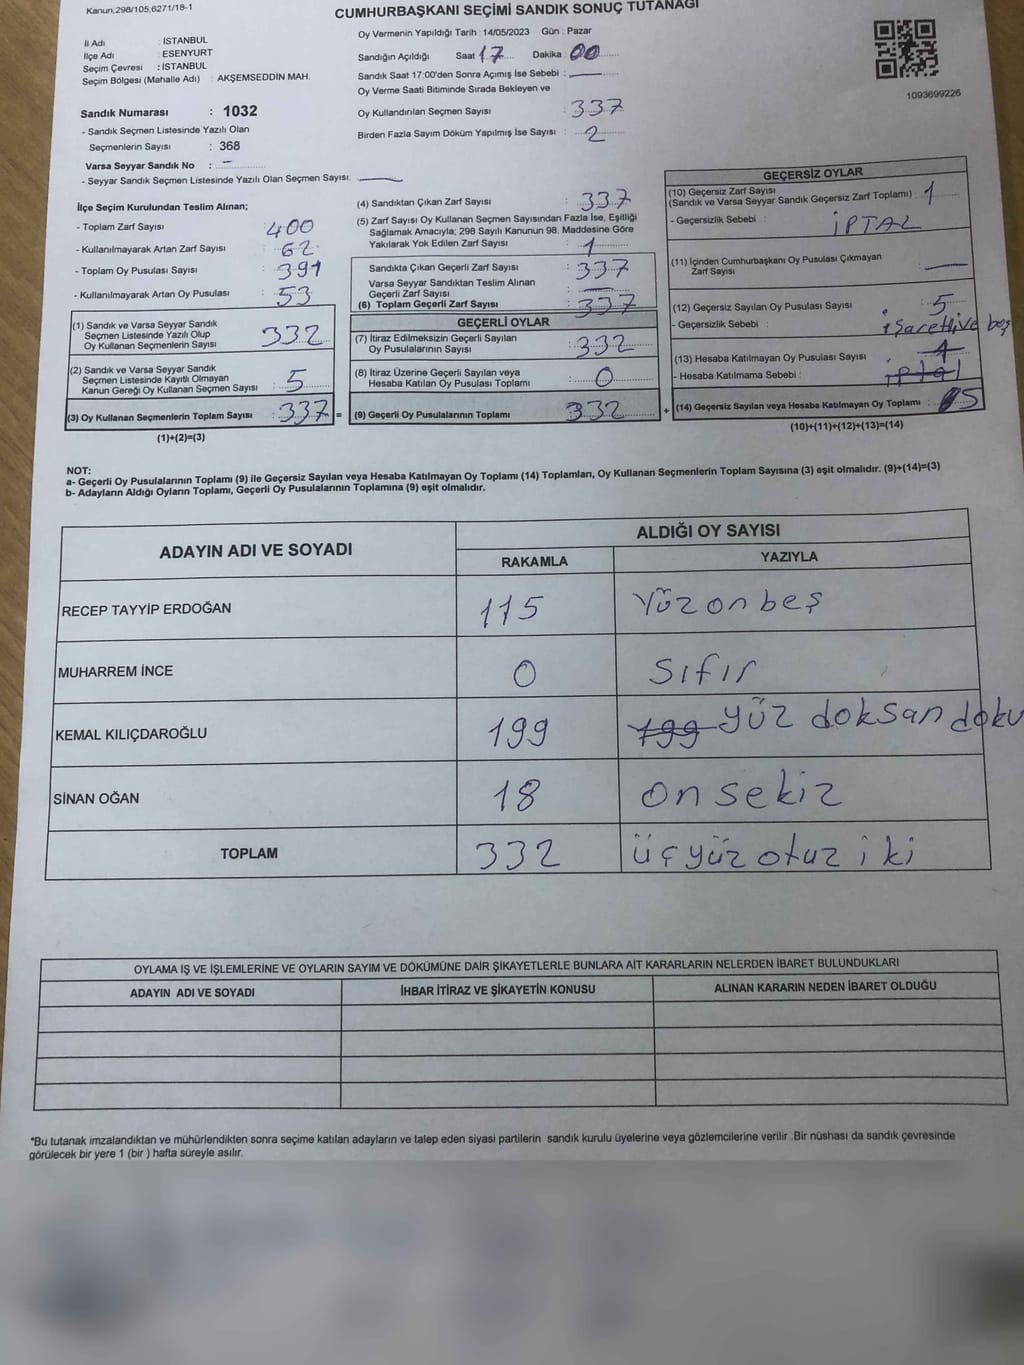 Kanun,298/105,6271/18-1
CUMHURBAŞKANI SEÇİMİ SANDIK SONUÇ TUTANAĞI
İl Adı : İSTANBUL
İlçe Adı : ESENYURT
Seçim Çevresi : İSTANBUL
Seçim Bölgesi (Mahalle Adı) : AKŞEMSEDDİN MAH.
Oy Vermenin Yapıldığı Tarih : 14/05/2023 Gün : Pazar
Sandığın Açıldığı Saat : 17 Dakika : 00
Sandık Saat 17:00'den Sonra Açımış İse Sebebi :
Oy Verme Saati Bitiminde Sırada Bekleyen ve
Oy Kullandırılan Seçmen Sayısı : 337
Birden Fazla Sayım Döküm Yapılmış İse Sayısı : 2
1093699226
Sandık Numarası : 1032
- Sandık Seçmen Listesinde Yazılı Olan
Seçmenlerin Sayısı : 368
Varsa Seyyar Sandık No : -
- Seyyar Sandık Seçmen Listesinde Yazılı Olan Seçmen Sayısı:
İlçe Seçim Kurulundan Teslim Alınan;
- Toplam Zarf Sayısı : 400
- Kullanılmayarak Artan Zarf Sayısı : 62
- Toplam Oy Pusulası Sayısı : 391
- Kullanılmayarak Artan Oy Pusulası : 53
(1) Sandık ve Varsa Seyyar Sandık
Seçmen Listesinde Yazılı Olup
Oy Kullanan Seçmenlerin Sayısı : 332
(2) Sandık ve Varsa Seyyar Sandık
Seçmen Listesinde Kayıtlı Olmayan
Kanun Gereği Oy Kullanan Seçmen Sayısı : 5
(3) Oy Kullanan Seçmenlerin Toplam Sayısı : 337 =
(1)+(2)=(3)
(4) Sandıktan Çıkan Zarf Sayısı : 337
(5) Zarf Sayısı Oy Kullanan Seçmen Sayısından Fazla İse, Eşitliği
Sağlamak Amacıyla; 298 Sayılı Kanunun 98. Maddesine Göre
Yakılarak Yok Edilen Zarf Sayısı : 1
Sandıkta Çıkan Geçerli Zarf Sayısı : 337
Varsa Seyyar Sandıktan Teslim Alınan
Geçerli Zarf Sayısı :
(6) Toplam Geçerli Zarf Sayısı : 337
GEÇERLİ OYLAR
(7) İtiraz Edilmeksizin Geçerli Sayılan
Oy Pusulalarının Sayısı : 332
(8) İtiraz Üzerine Geçerli Sayılan veya
Hesaba Katılan Oy Pusulası Toplamı : 0
(9) Geçerli Oy Pusulalarının Toplamı : 332 +
GEÇERSİZ OYLAR
(10) Geçersiz Zarf Sayısı
(Sandık ve Varsa Seyyar Sandık Geçersiz Zarf Toplamı) : 1
- Geçersizlik Sebebi : İPTAL
(11) İçinden Cumhurbaşkanı Oy Pusulası Çıkmayan
Zarf Sayısı :
(12) Geçersiz Sayılan Oy Pusulası Sayısı : 5
- Geçersizlik Sebebi : işaretli ve boş
(13) Hesaba Katılmayan Oy Pusulası Sayısı : 1
- Hesaba Katılmama Sebebi : iptal
(14) Geçersiz Sayılan veya Hesaba Katılmayan Oy Toplamı : 5
(10)+(11)+(12)+(13)=(14)
NOT:
a- Geçerli Oy Pusulalarının Toplamı (9) ile Geçersiz Sayılan veya Hesaba Katılmayan Oy Toplamı (14) Toplamları, Oy Kullanan Seçmenlerin Toplam Sayısına (3) eşit olmalıdır. (9)+(14)=(3)
b- Adayların Aldığı Oyların Toplamı, Geçerli Oy Pusulalarının Toplamına (9) eşit olmalıdır.
ADAYIN ADI VE SOYADI
ALDIĞI OY SAYISI
RAKAMLA YAZIYLA
RECEP TAYYİP ERDOĞAN 115 Yüz on beş
MUHARREM İNCE 0 Sıfır
KEMAL KILIÇDAROĞLU 199 199 yüz doksan doku
SİNAN OĞAN 18 on sekiz
TOPLAM 332 üç yüz otuz iki
OYLAMA İŞ VE İŞLEMLERİNE VE OYLARIN SAYIM VE DÖKÜMÜNE DAİR ŞİKAYETLERLE BUNLARA AİT KARARLARIN NELERDEN İBARET BULUNDUKLARI
ADAYIN ADI VE SOYADI İHBAR İTİRAZ VE ŞİKAYETİN KONUSU ALINAN KARARIN NEDEN İBARET OLDUĞU
*Bu tutanak imzalandıktan ve mühürlendikten sonra seçime katılan adayların ve talep eden siyasi partilerin sandık kurulu üyelerine veya gözlemcilerine verilir .Bir nüshası da sandık çevresinde
görülecek bir yere 1 (bir ) hafta süreyle asılır.